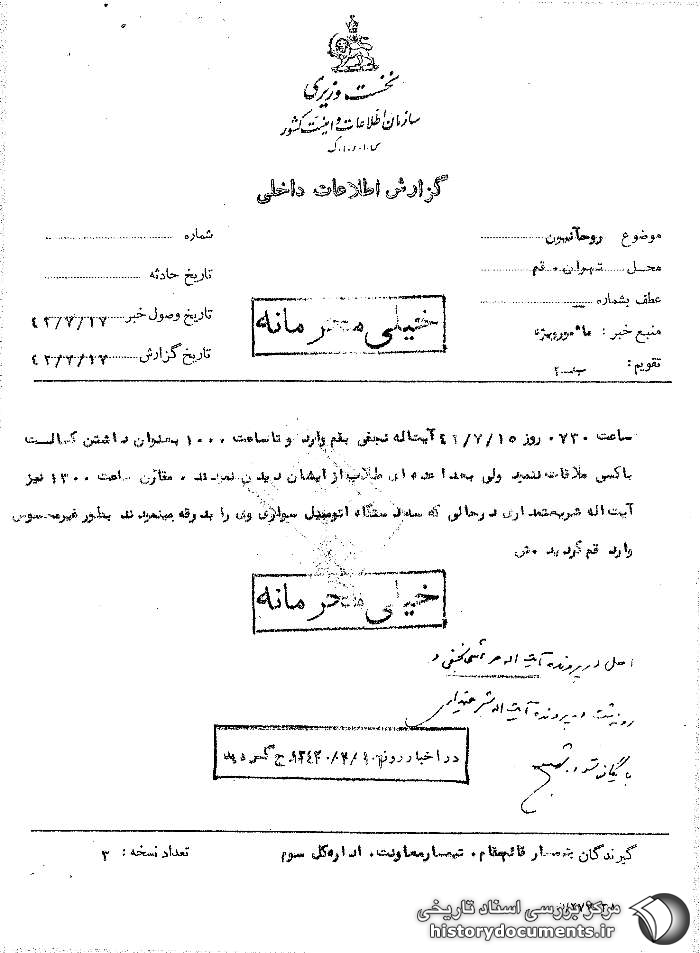 نخست وزیری
سازمان اطلاعات و امنیت کشور
س.ا.و.ا.ک
گزارش اطلاعات داخلی
موضوع روحانیون
شماره
محل تهران - قم
تاریخ حادثه
عطف بشماره
تاریخ وصول خبر ۴۲/۷/۱۷
منبع خبر : مامور ویژه
تاریخ گزارش ۴۲/۷/۱۷
تقویم :
خیلی محرمانه
ساعت ۰۷۳۰ روز ۴۲/۷/۱۵ آیت‌اله نجفی بقم وارد و تا ساعت ۱۰۰۰ بعنوان داشتن کسالت
باکسی ملاقات ننمود ولی بعدا عده ای طلاب از ایشان دیدن نمودند ، مقارن ساعت ۱۳۰۰ نیز
آیت اله شریعتمداری در حالی که سه دستگاه اتومبیل سواری وی را بدرقه مینمودند بطور غیرمحسوس
وارد قم گردید
خیلی محرمانه
اصل در پرونده آیت اله مرعشی نجفی و
رونوشت در پرونده آیت اله شریعتمداری
بایگانی شود
در اخبار روز درج گردید
گیرندگان تیمسار قائم‌مقام ، تیمسار معاونت ، اداره کل سوم
تعداد نسخه : ۳
مرکز بررسی اسناد تاریخی
historydocuments.ir